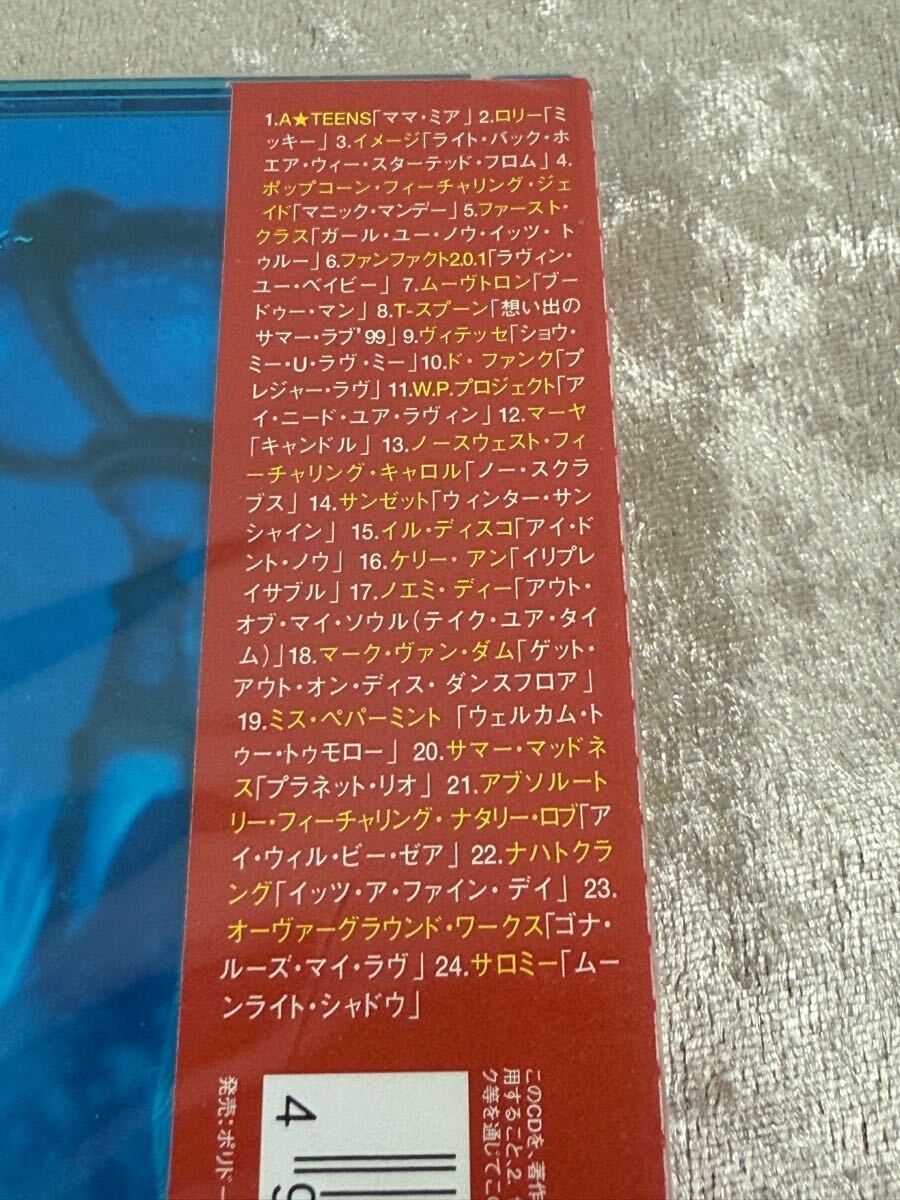 1.A★TEENS「ママ・ミア」2.ロリー「ミ
ッキー」3.イメージ「ライト・バック・ホ
エア・ウィー・スターテッド・フロム」4.
ポップコーン・フィーチャリング・ジェ
イド「マニック・マンデー」5.ファースト・
クラス「ガール・ユー・ノウ・イッツ・トゥ
ルー」6.ファンファクト2.0.1「ラヴィン・
ユー・ベイビー」7.ムーヴトロン「ブー
ドゥー・マン」8.T-スプーン「想い出の
サマー・ラブ'99」9.ヴィテッセ「ショウ・
ミー・U・ラヴ・ミー」10.ド・ファンク「プ
レジャー・ラヴ」11.W.P.プロジェクト「ア
イ・ニード・ユア・ラヴィン」12.マーヤ
「キャンドル」13.ノースウェスト・フィ
ーチャリング・キャロル「ノー・スクラ
ブス」14.サンゼット「ウィンター・サン
シャイン」15.イル・ディスコ「アイ・ド
ント・ノウ」16.ケリー・アン「イリプレ
イサブル」17.ノエミ・ディー「アウト・
オブ・マイ・ソウル(テイク・ユア・タイ
ム)」18.マーク・ヴァン・ダム「ゲット・
アウト・オン・ディス・ダンスフロア」
19.ミス・ペパーミント「ウェルカム・ト
ゥー・トゥモロー」20.サマー・マッドネ
ス「プラネット・リオ」21.アブソルート
リー・フィーチャリング・ナタリー・ロブ「ア
イ・ウィル・ビー・ゼア」22.ナハトクラ
ング「イッツ・ア・ファイン・デイ」23.
オーヴァーグラウンド・ワークス「ゴナ・
ルーズ・マイ・ラヴ」24.サロミー「ムー
ンライト・シャドウ」
このCDを、著作
用すること、2.
ク等を通じてこの
発売:ポリドー
4 9